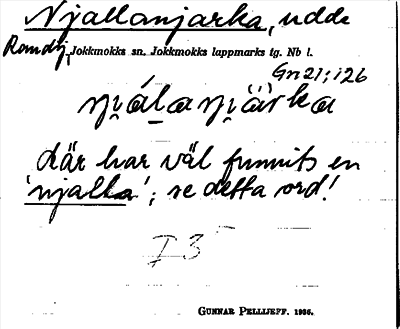 Njallanjarka, udde
Randij, Jokkmokks sn. Jokkmokks lappmarks tg. Nb l.
Gn 21; 126
där har väl funnits en
'njalla'; se detta ord!
I 35
GUNNAR PELLIJEFF. 1936.